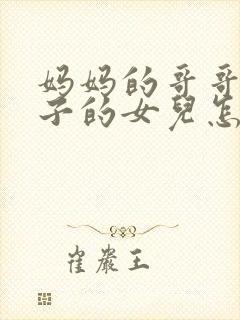 妈妈的哥哥
子的女兒怎
崔嚴王